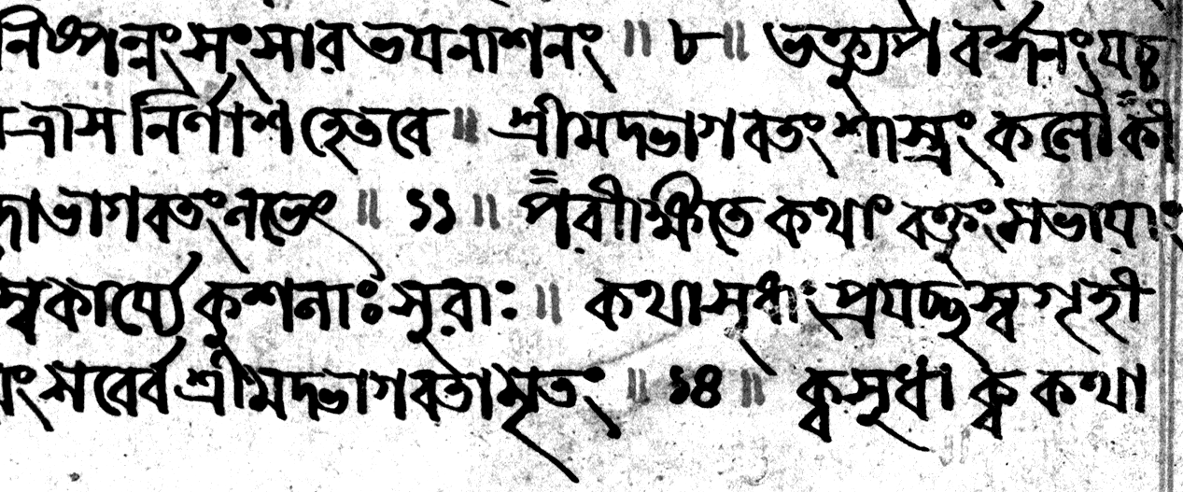 নিষ্পন্নং সংসার ভয়নাশনং ॥ ৮ ॥ ভক্ত্যুপ বর্দ্ধনং যচ্চ
ত্রাস নির্ণাশ হেতবে ॥ শ্রীমদ্ভাগবতং শাস্ত্রং কলৌ কী
দাভাগবতং নভেৎ ॥ ১১ ॥ পরীক্ষিতে কথাং বক্তুং সভায়াং
স্বকার্য্যে কুশলাঃ সুরাঃ ॥ কথাসুধাং প্রযচ্ছস্ব গৃহী
সর্বের্ব শ্রীমদ্ভাগবতামৃতং ॥ ১৪ ॥ ক্ব সুধা ক্ব কথা